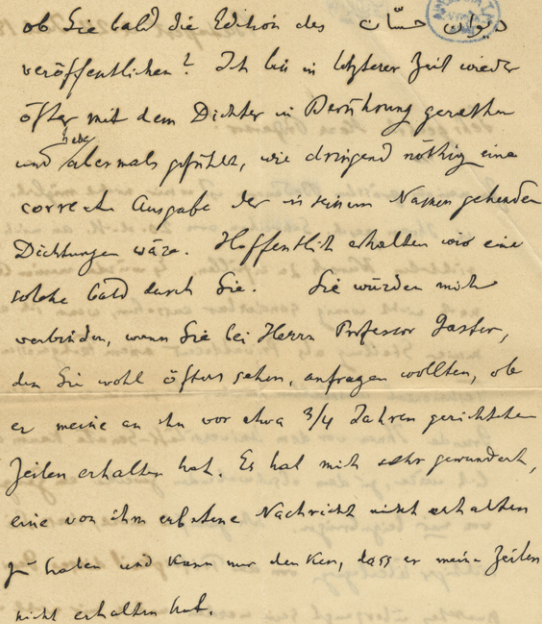 ob Sie bald die Edition des ديوان حسّان
veröffentlichen? Ich bin in letzterer Zeit wieder
öfter mit dem Dichter in Berührung gerathen
und habe abermals gefühlt, wie dringend nöthig eine
correcte Ausgabe der in seinem Namen gehenden
Dichtungen wäre. Hoffentlich erhalten wir eine
solche bald durch Sie. Sie würden mich
verbinden, wenn Sie bei Herrn Professor Gaster,
den Sie wohl öfters sehen, anfragen wollten, ob
er meine an ihn vor etwa 3/4 Jahren gerichteten
Zeilen erhalten hat. Es hat mich sehr gewundert,
eine von ihm erbetene Nachricht nicht erhalten
zu haben und kann mir denken, dass er meine Zeilen
nicht erhalten hat.